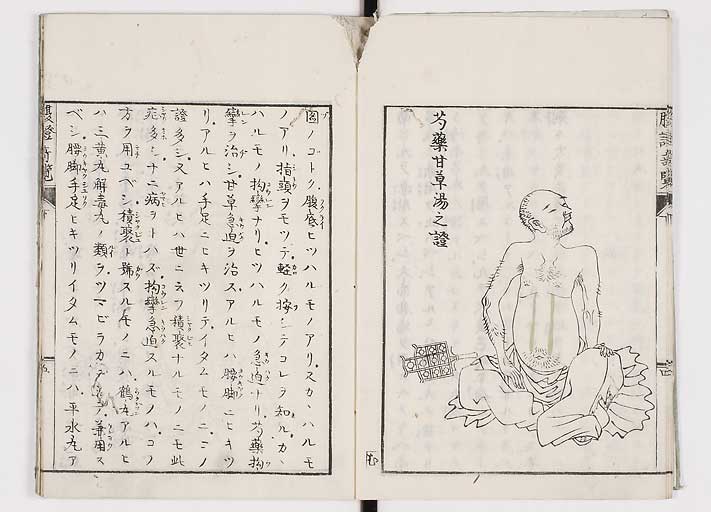 芍藥甘草湯之證
圖ノコトク腹底ヒツハルモノアリスカヽハルモ
ノアリ指頭ヲモツテ軽ク按シテコレヲ知ルカヽ
ハルモノ拘攣ナリヒツハルモノ急迫ナリ芍藥拘
攣ヲ治シ甘草急迫ヲ治スアルヒハ腰脚ニヒキツ
リアルヒハ手足ニヒキツリテイタムモノニコノ
證多シ又アルヒハ世ニイフ積聚ナルモノニモ此
症多シナニ病ヲトハズ拘攣急迫スルモノハコノ
方ヲ用ユベシ積聚ト號スルモノニハ鶴丸アルヒ
ハ三黄丸解毒丸ノ類ヲツマビラカニシテ兼用ス
ベシ腰脚手足ヒキツリイタムモノニハ平水丸ア
腹證奇覽
下
五